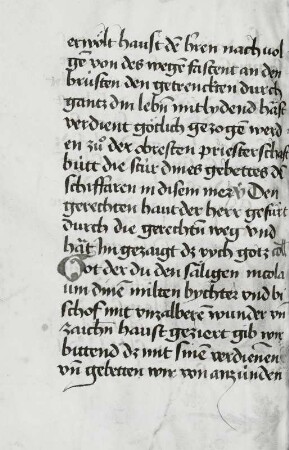 erwölt haust dē hren nach uol
gē von des wege fastent an den
brüsten den getrenckten durch
gantz din lebn mitlydend häst
verdient götlich gezogen werd
en zů der obresten priesterschaft
bütt die stür dines gebettes dē
schiffaren in disem mer Den
gerechten haut der herr gefürt
durch die gerechtn weg vnd
hät Im gezaigt dz rych gotz coll
Got der du den säligen nicola
um dinē milten bychter vnd bi
schof mit vnzalberē wunder vn
zaichn haust geziert gib wir
bittend dz mit sinē verdienen
vn gebetten wir von anzünden